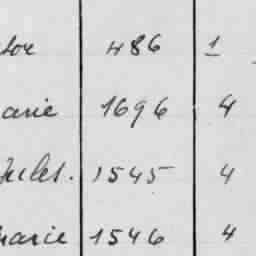 486 1
arie 1696 4
Jules. 1545 4
marie 1546 4